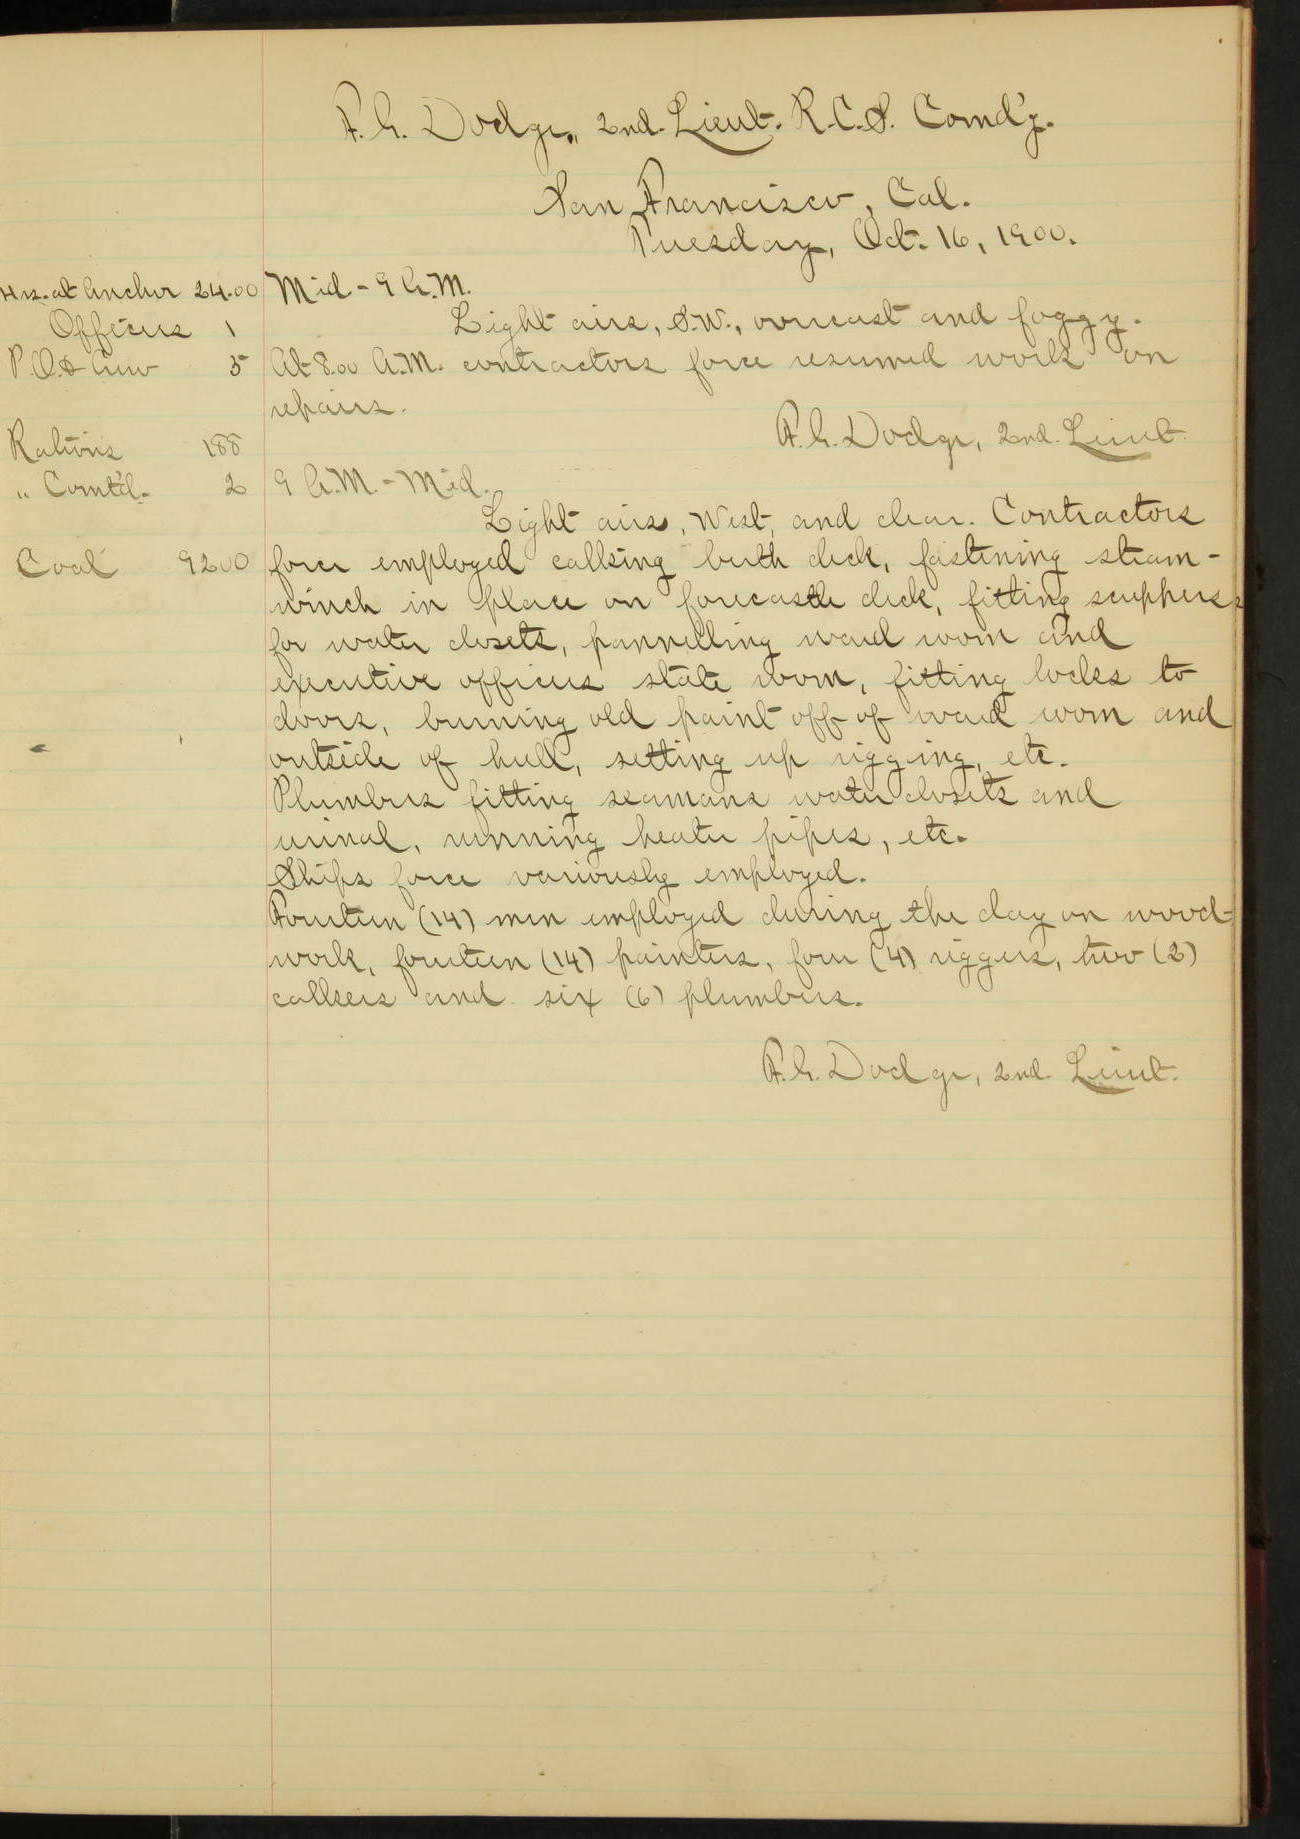 F. G. Dodge, 2nd. Lieut. R.C.S. Comd'g.
San Francisco, Cal.
Tuesday, Oct. 16, 1900.
Hrs. at Anchor 24.00
Officers 1
P.O. & Crew 5
Rations 188
" Comt'd. 2
Coal 9200
Mid - 9 A.M.
Light airs, S.W., overcast and foggy.
At 8.00 A.M. contractors force resumed work on
repairs.
F. G. Dodge, 2nd. Lieut.
9 A.M. - Mid.
Light airs, West, and clear. Contractors
force employed calking berth deck, fastening steam-
winch in place on forecastle deck, fitting scuppers
for water closets, pannelling ward room and
executive officers state room, fitting locks to
doors, burning old paint off of ward room and
outside of hull, setting up rigging, etc.
Plumbers fitting seamans water closets and
urinal, running heater pipes, etc.
Ships force variously employed.
Fourteen (14) men employed during the day on wood-
work, fourteen (14) painters, four (4) riggers, two (2)
calkers and six (6) plumbers.
F. G. Dodge, 2nd. Lieut.